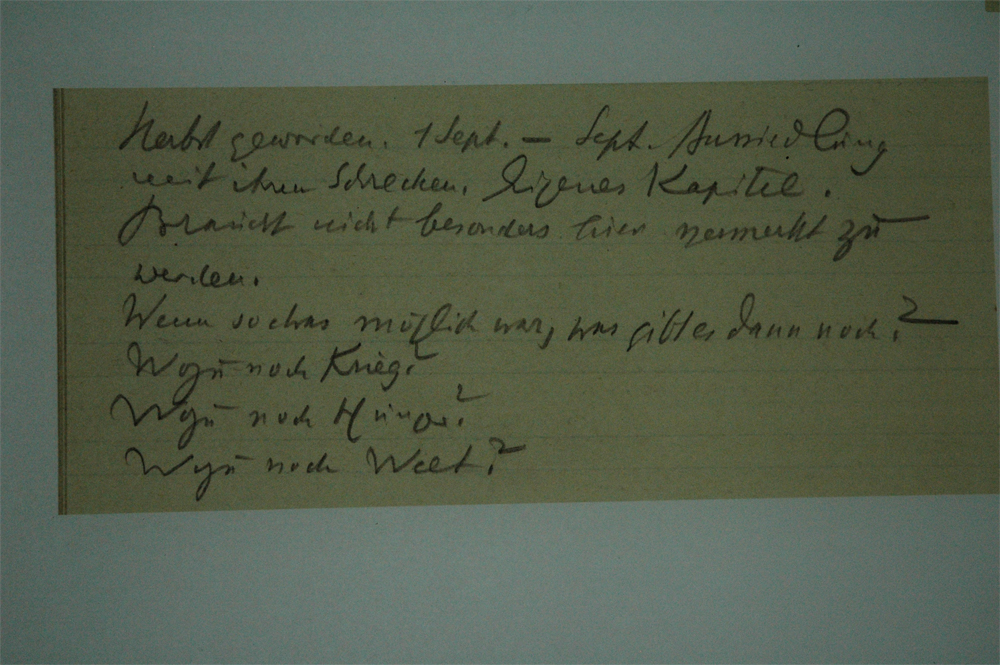 Herbst geworden. 1 Sept. – Sept. Aussiedlung
mit ihren Schrecken. Eigenes Kapitel.
Braucht nicht besonders hier vermerkt zu
werden.
Wenn sowas möglich war, was gibt es dann noch?
Wozu noch Krieg?
Wozu noch Hunger?
Wozu noch Welt?